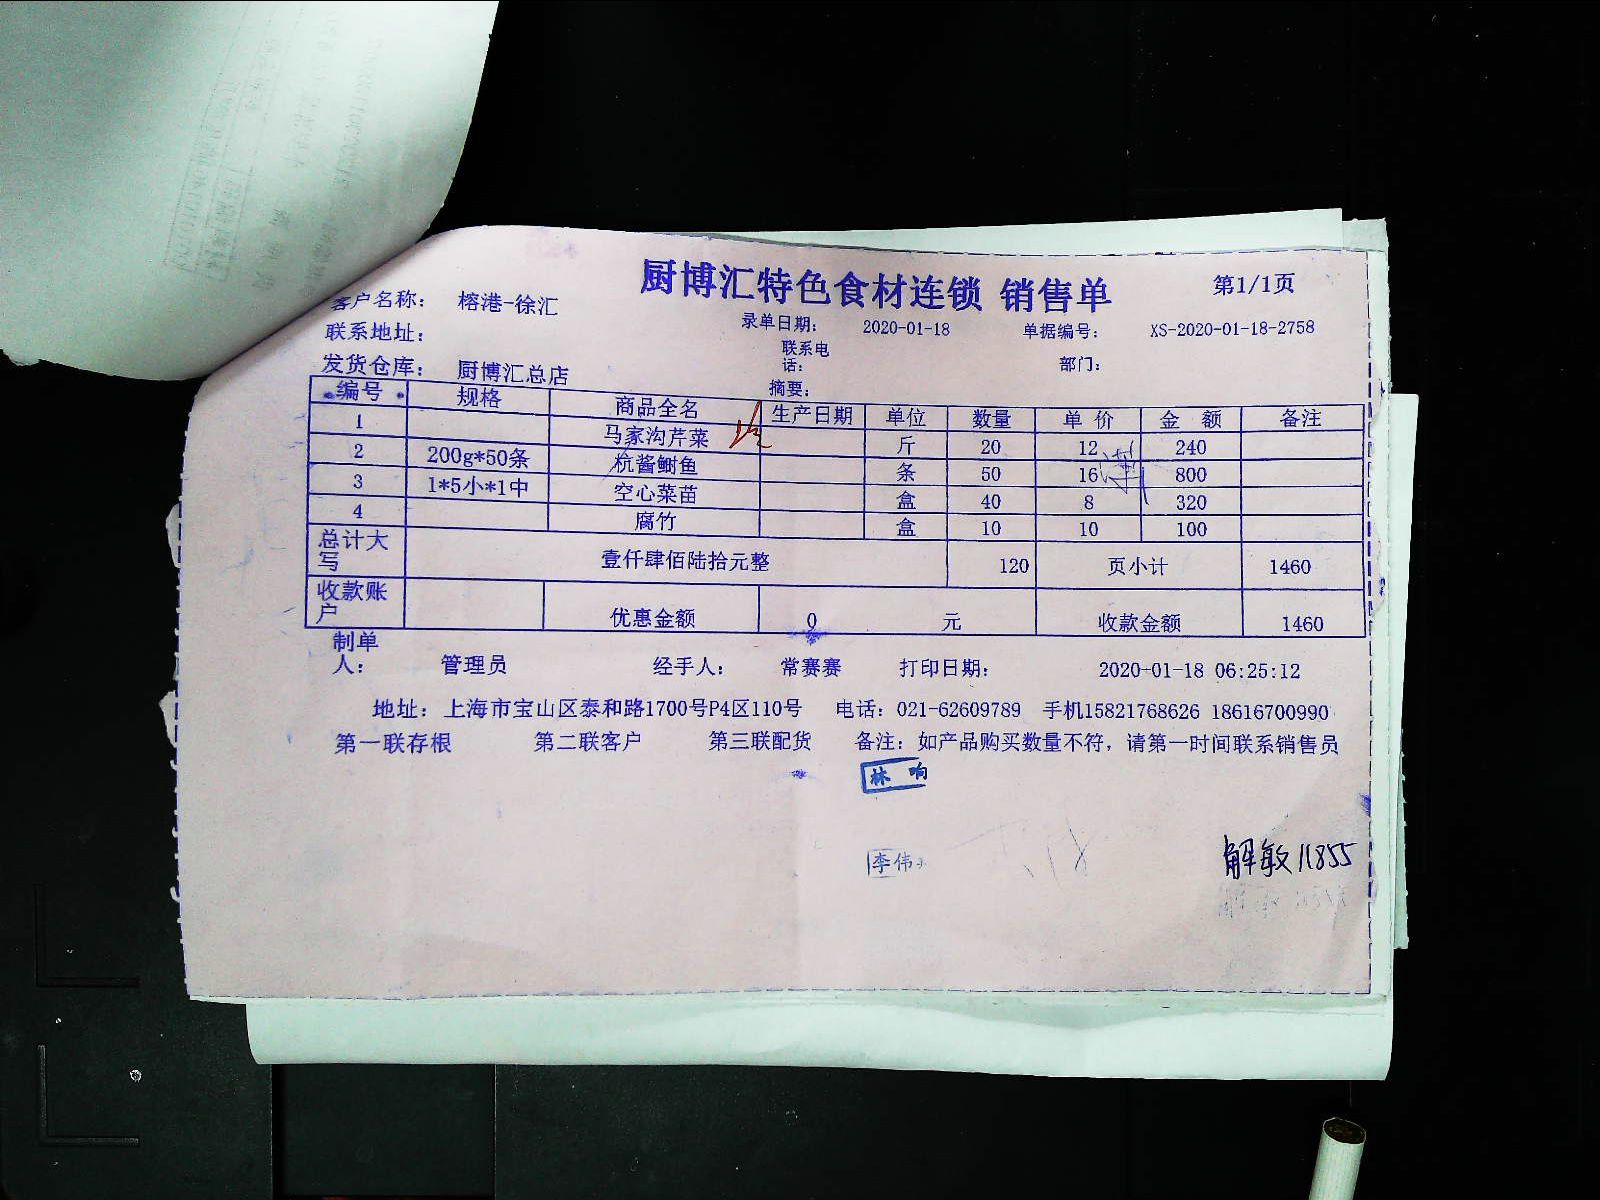 厨博汇特色食材连锁 销售单 第1/1页
客户名称： 榕港-徐汇 录单日期： 2020-01-18 单据编号： XS-2020-01-18-2758
联系地址： 联系电话： 部门：
发货仓库： 厨博汇总店 摘要：
编号 规格 商品全名 生产日期 单位 数量 单价 金额 备注
1 马家沟芹菜 斤 20 12 240
2 200g*50条 杭酱鲥鱼 条 50 16 800
3 1*5小*1中 空心菜苗 盒 40 8 320
4 腐竹 盒 10 10 100
总计大写 壹仟肆佰陆拾元整 120 页小计 1460
收款账户 优惠金额 0 元 收款金额 1460
制单人： 管理员 经手人： 常赛赛 打印日期： 2020-01-18 06:25:12
地址：上海市宝山区泰和路1700号P4区110号 电话：021-62609789 手机15821768626 18616700990
第一联存根 第二联客户 第三联配货 备注：如产品购买数量不符，请第一时间联系销售员
林 响
李伟
解敏11855